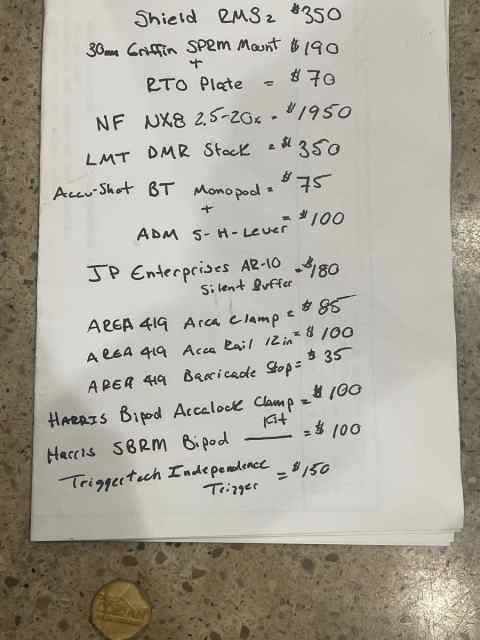 Shield RMS2 $350
30mm Griffin SPRM Mount $190
+
RTO Plate = $70
NF NX8 2.5-20x = $1950
LMT DMR Stock = $350
Accu-Shot BT Monopod = $75
+
ADM S-H-Lever = $100
JP Enterprises AR-10 = $180
Silent Buffer
AREA 419 Arca Clamp = $85
AREA 419 Arca Rail 12in = $100
AREA 419 Barricade Stop = $35
HARRIS Bipod Accalock Clamp = $100
Kit
Harris SBRM Bipod = $100
Triggertech Independence = $150
Trigger